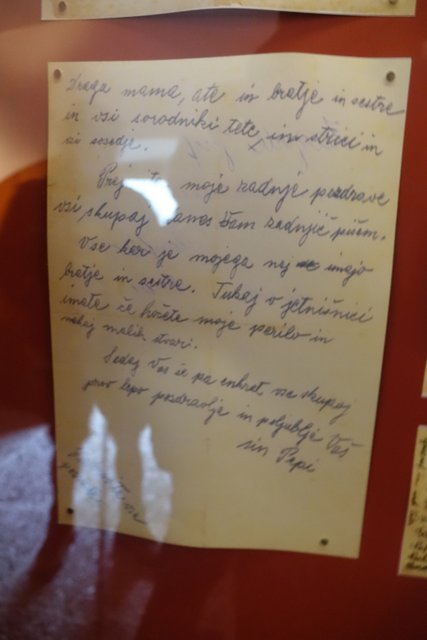 Draga mama, ate in bratje in sestre
in vsi sorodniki tete in strici in
vsi sosedje.
Prejmite moje zadnje pozdrave
vsi skupaj danes Vam zadnjič pišem.
Vse kar je mojega naj imajo
bratje in sestre. Tukaj v jetnišnici
imate če hočete moje perilo in
nekaj malih stvari.
Sedaj Vas še pa enkrat vse skupaj
prav lepo pozdravlja in poljublja Vaš
sin Pepi